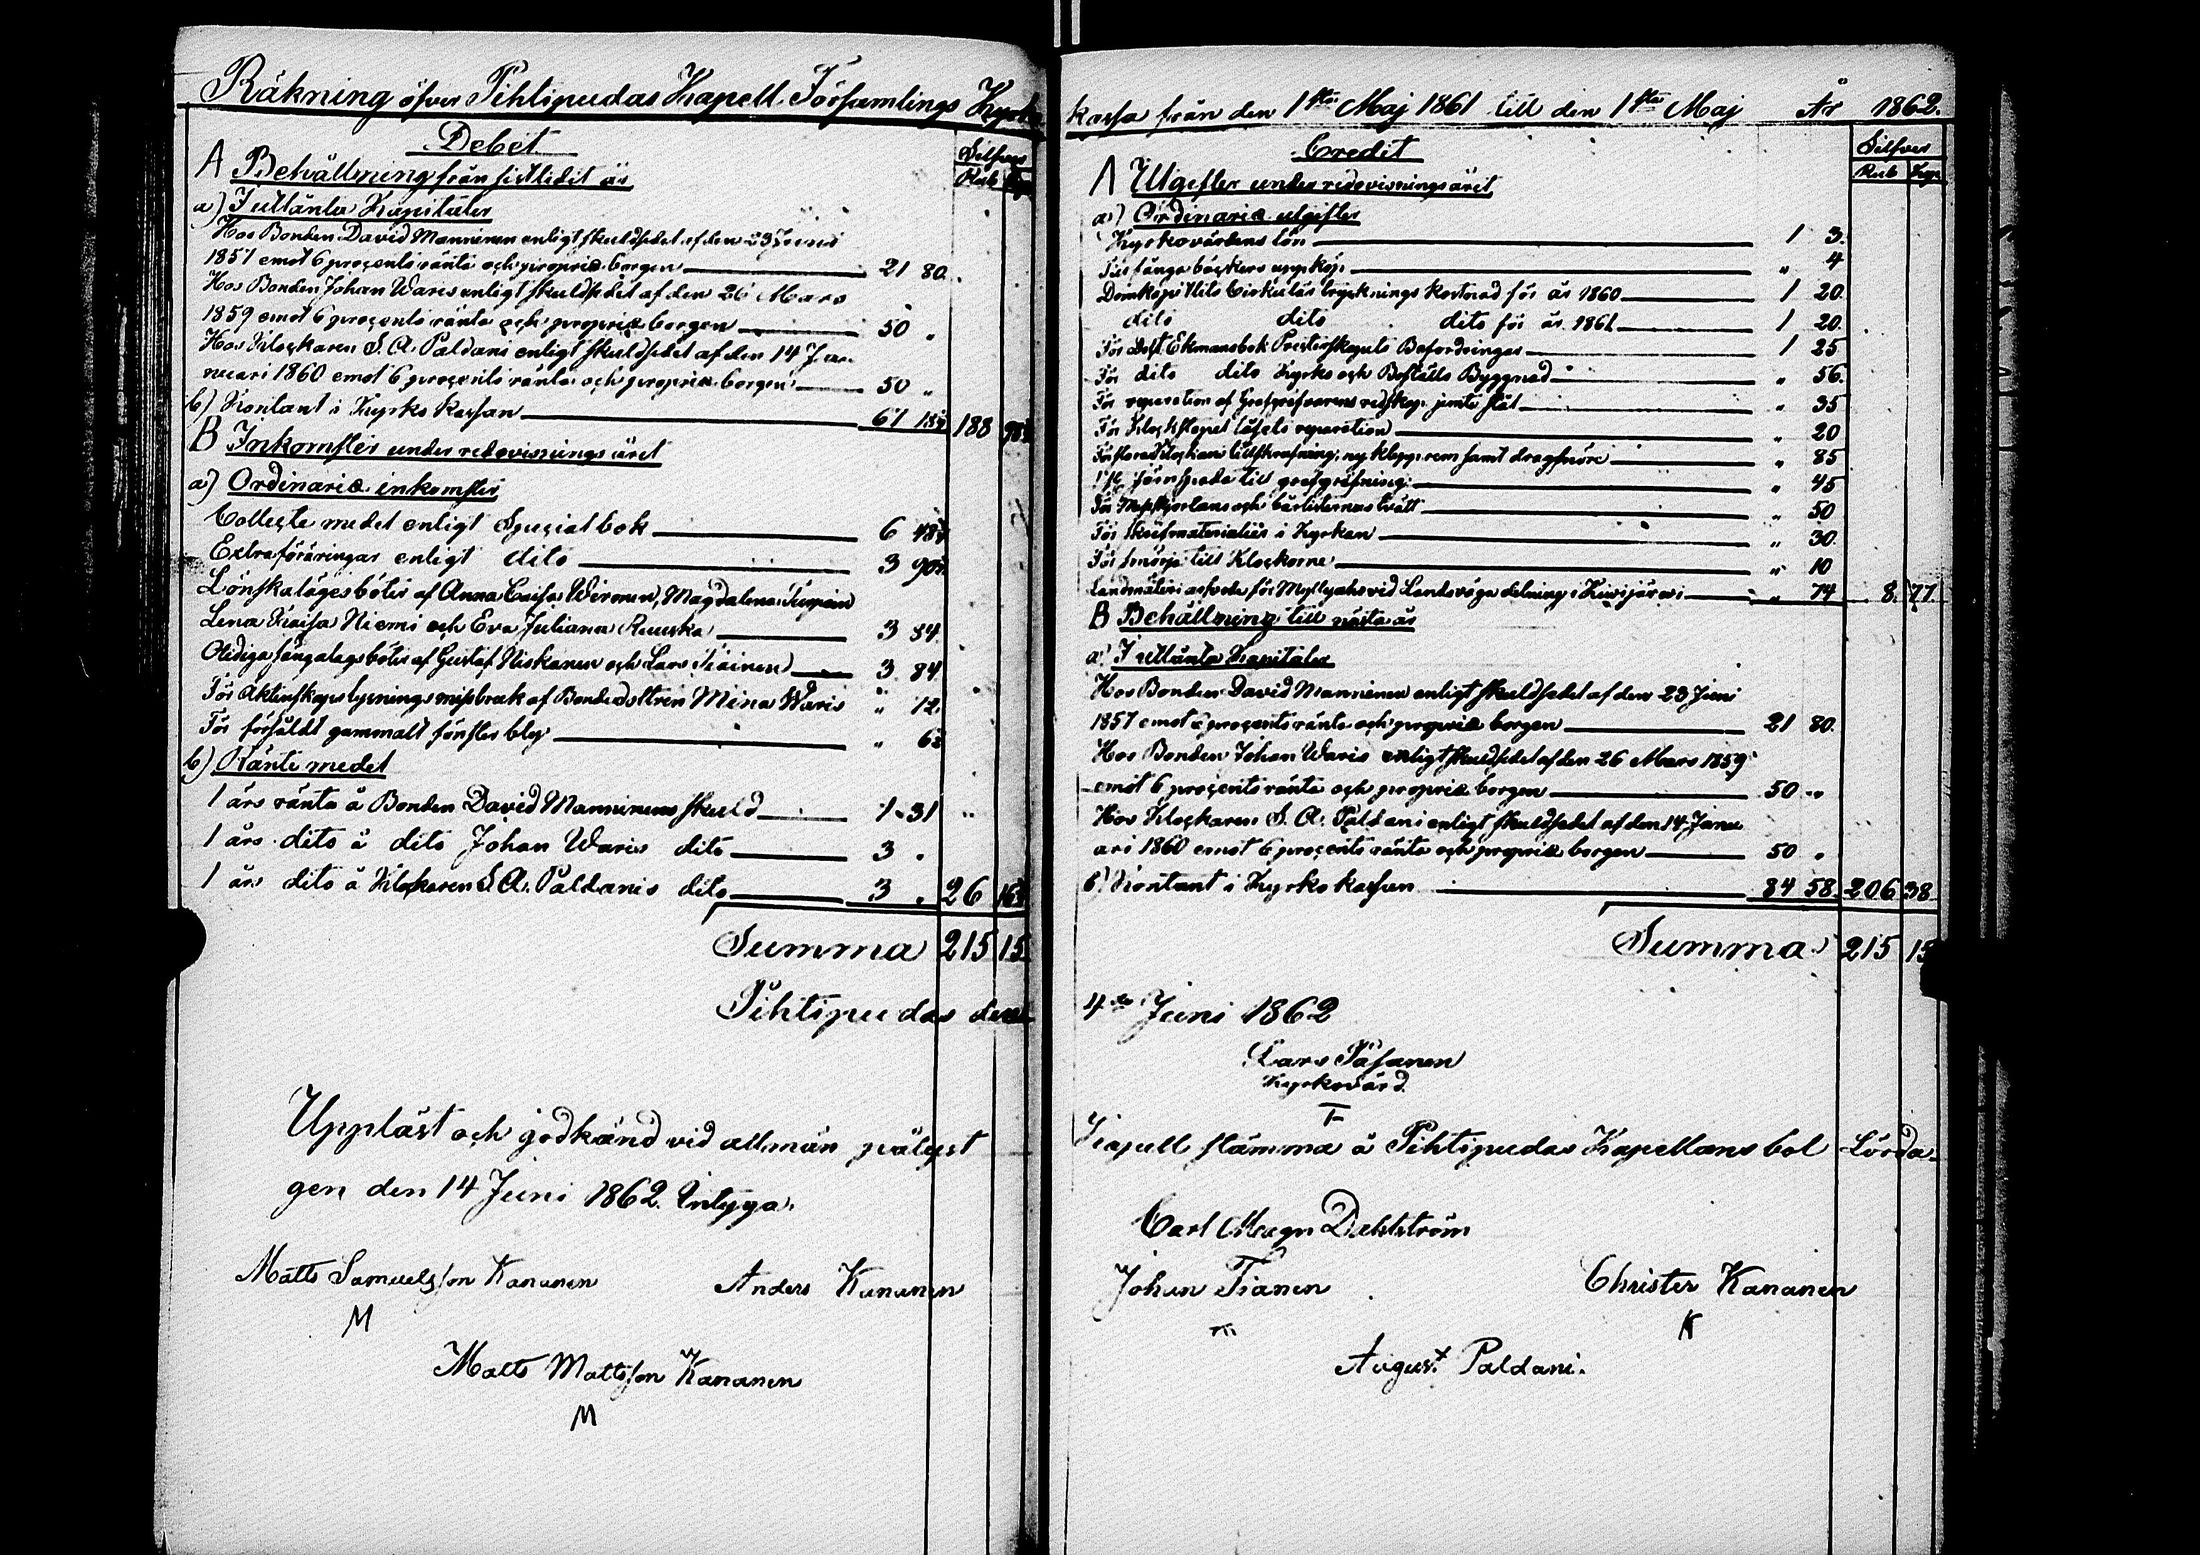 Räkning öfver Pihtipudas Kapell Församlings Kyrko
Debet
Silfver
Rub Kop
A Behållning från sistlidit år
a) Lultånta Kapitaler
Hos Bonden David Manninen enligt skuldsedel af den 23 Juni
1857 emot 6 procents ränta och proprie borgen 21 80.
Hos Bonden Johan Waris enligt skuldsedel af den 26 Mars
1859 emot 6 procents ränta och proprie borgen 50 „
Hos Klockaren S. A. Paldani enligt skuldsedel af den 14 Ja-
nuari 1860 emot 6 procents ränta och proprie borgen 50 „
b) Kontant i Kyrko kassan 67 188
B Inkomster under redovisnings året
a) Ordinarie inkomster
Collecte medel enligt Special bok 6
Extraföräringar enligt dito 3
Lönskalägesböter af Anna Caisa Wironen, Magdalena
Lena Kaisa Niemi och Eva Juliana Ruuska 3 84.
Otidiga sängalagsböter af Gustaf Niskanen och Lars 3 84.
För äktenskaps lysnings missbruk af Bondedottren Mina Waris „ 12.
För försåldt gammalt fönster bly „
b) Ränte medel
1 års ränta å Bonden David Manninens skuld 1 31
1 års dito å dito Johan Waris dito 3 „
1 års dito å Klockaren S. A. Paldanis dito 3 „ 26
Summa 215 15
Pihtipudas den
Uppläst och godkänd vid allmän pålyst
gen den 14 Juni 1862. Intyga.
Matts Samuelsson Kananen
Anders Kananen
M
Matts Mattsson Kananen
M
kassa från den 1sta Maj 1861 till den 1sta Maj År 1862.
Credit
Silfver
Rub Kop
A Utgifter under redovisnings året
a) Ordinarie utgifter
Kyrkovärdens lön 1 3.
För fånga böckers uppköp „ 4
Domkapitlets Cirkulär trycknings kostnad för år 1860 1 20.
dito dito dito för år 1861 1 20.
För Ekmans bok Presterskapets Befordringar 1 25
För dito dito Kyrko och Boställs Byggnad „ 56.
För reparation af redskap jemte stål „ 35
För Klockstapel låsets reparation „ 20
För stora Klockans tillskrufning, ny klepprem samt dragsnöre „ 85
1 st. Jernspade till grafgräfning „ 45
För Messkjortans och tvätt „ 50
För Skrifmaterialier i Kyrkan „ 30.
För smörja till Klockorne „ 10
Landmäteri arfvode för Myllyaho vid Landsvägs delning i Kivijärvi „ 74 8. 77.
B Behållning till nästa år
a) Lultånta Kapitaler
Hos Bonden David Manninen enligt skuldsedel af den 23 Juni
1857 emot 6 procents ränta och proprie borgen 21 80.
Hos Bonden Johan Waris enligt skuldsedel af den 26 Mars 1859
emot 6 procents ränta och proprie borgen 50 „
Hos Klockaren S. A. Paldani enligt skuldsedel af den 14 Janu
ari 1860 emot 6 procents ränta och proprie borgen 50 „
b) Kontant i Kyrko kassan 84 58. 206 38.
Summa 215 15
4de Juni 1862
Lars Päsanen
Kyrkovärd.
Kapell stämma å Pihtipudas Kapellans bol Lörda-
Carl Magn Dahlström
Johan Tianen
Christer Kananen
K
August Paldani.